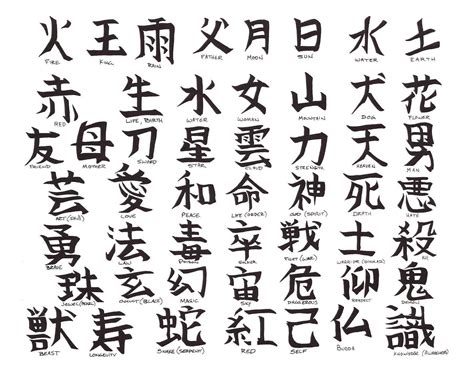 火 王 雨 父 月 日 水 土
FIRE KING RAIN FATHER MOON SUN WATER EARTH
赤 生 水 女 山 犬 花
RED LIFE, BIRTH WATER WOMAN MOUNTAIN DOG FLOWER
友 母 刀 星 雲 力 天 男
FRIEND MOTHER SWORD STAR CLOUD STRENGTH HEAVEN MAN
芸 愛 和 命 神 死 悪
ART (SKILL) LOVE PEACE LIFE (ORDER) GOD (SPIRIT) DEATH HATE
勇 法 毒 卒 戦 士 殺
BRAVE LAW POISON FIGHT (WAR) KILL
珠 玄 幻 宙 危 仰
JEWEL (PEARL) OCCULT (BLACK) MAGIC SKY DANGEROUS RESPECT
獣 寿 蛇 紅 己 仏 識
BEAST LONGEVITY SNAKE (SERPENT) RED SELF BUDDHA